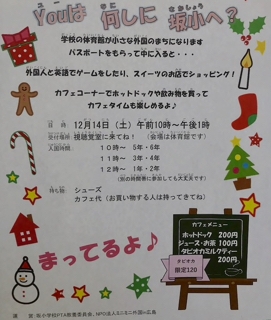 ユー なに さかしょう
Youは 何しに 坂小へ?
学校の体育館が小さな外国のまちになります
パスポートをもらって中に入ると・・・
外国人と英語でゲームをしたり、スイーツのお店でショッピング!
カフェコーナーでホットドックや飲み物を買って
カフェタイムも楽しめるよ♪
日時 12月14日(土) 午前10時～午後1時
受付場所 視聴覚室に来てね! (会場は体育館です)
入国時間 10時～ 5年・6年
11時～ 3年・4年
12時～ 1年・2年
(別の時間帯に参加しても大丈夫です)
持ち物 シューズ
カフェ代(お買い物する人は持ってきてね)
まってるよ♪
カフェメニュー
ホットドック 200円
ジュース・お茶 100円
タピオカミルクティー
200円
タピオカ
限定120
坂小学校PTA